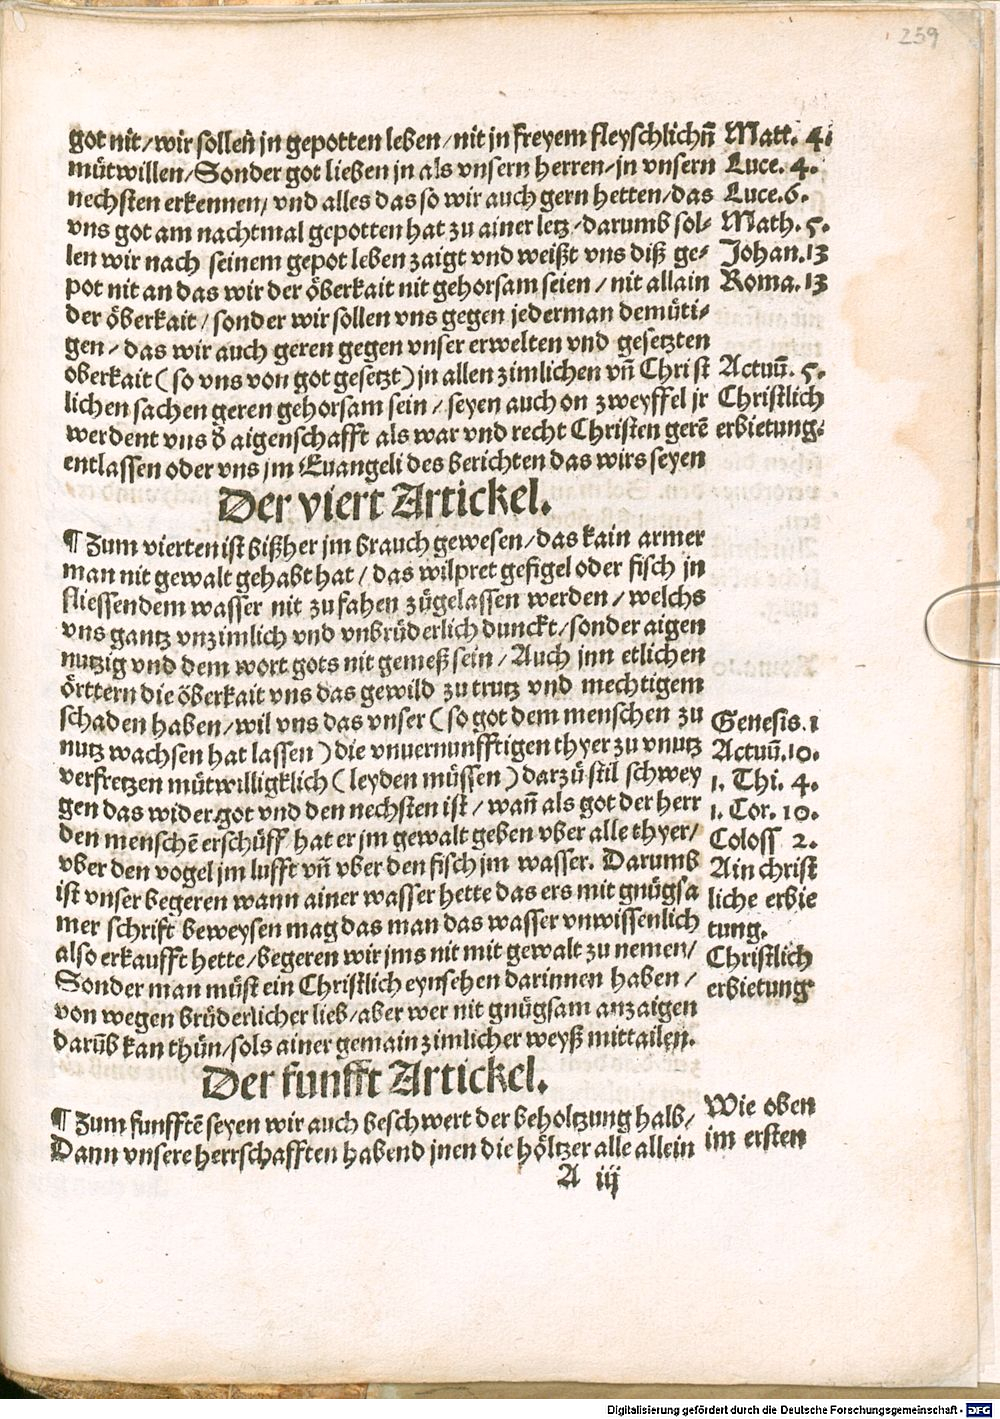 259
got nit/wir sollen jn gepotten leben/nit jn freyem fleyschlichñ
můtwillen/Sonder got lieben jn als vnsern herren/jn vnsern
nechsten erkennen/ vnd alles das so wir auch gern hetten/das
vns got am nachtmal gepotten hat zu ainer letz/darumb sol⸗
len wir nach seinem gepot leben zaigt vnd weißt vns diß ge⸗
pot nit an das wir der öberkait nit gehorsam seien/nit allain
der öberkait/sonder wir sollen vns gegen jederman demüti⸗
gen/das wir auch geren gegen vnser erwelten vnd gesetzten
oberkait (so vns von got gesetzt) jn allen zimlichen vñ Christ
lichen sachen geren gehorsam sein/seyen auch on zweyffel jr
werdent vns d̃ aigenschafft als war vnd recht Christen gerẽ
entlassen oder vns jm Euangeli des berichten das wirs seyen
Matt. 4.
Luce. 4.
Luce.6.
Math. 5.
Johan.13
Roma. 13
Actuũ. 5.
Christlich
erbietung.
Der viert Artickel.
¶ Zum vierten ist bißher jm brauch gewesen/das kain armer
man nit gewalt gehabt hat/das wilpret gefigel oder fisch jn
fliessendem wasser nit zu fahen zůgelassen werden/welchs
vns gantz vnzimlich vnd vnbrüderlich dunckt/sonder aigen
nutzig vnd dem wort gots nit gemeß sein/Auch jnn etlichen
örttern die öberkait vns das gewild zu trutz vnd mechtigem
schaden haben/wil vns das vnser (so got dem menschen zu
nutz wachsen hat lassen) die vnuernunfftigen thyer zu vnutz
verfretzen můtwilligklich (leyden müssen) darzů stil schwey
gen das wider got vnd den nechsten ist/wañ als got der herr
den menschẽ erschůff hat er jm gewalt geben vber alle thyer/
vber den vogel jm lufft vñ vber den fisch jm wasser. Darumb
ist vnser begeren wann ainer wasser hette das ers mit gnůgsa
mer schrift beweysen mag das man das wasser vnwissenlich
also erkaufft hette/begeren wir jms nit mit gewalt zu nemen/
Sonder man můst ein Christlich eynsehen darinnen haben/
von wegen brüderlicher lieb/aber wer nit gnůgsam anzaigen
darũb kan thůn/sols ainer gemain zimlicher weyß mittailen.
Genesis. 1
Actuũ.10.
1. Thi. 4.
1. Cor. 10.
Coloss 2.
Ain christ
liche erbie
tung.
Christlich
erbietung
Der funfft Artickel.
¶ Zum funfftẽ seyen wir auch beschwert der beholtzung halb/
Dann vnsere herrschafften habend jnen die höltzer alle allein
Wie oben
im ersten
A iij
Digitalisierung gefördert durch die Deutsche Forschungsgemeinschaft - DFG